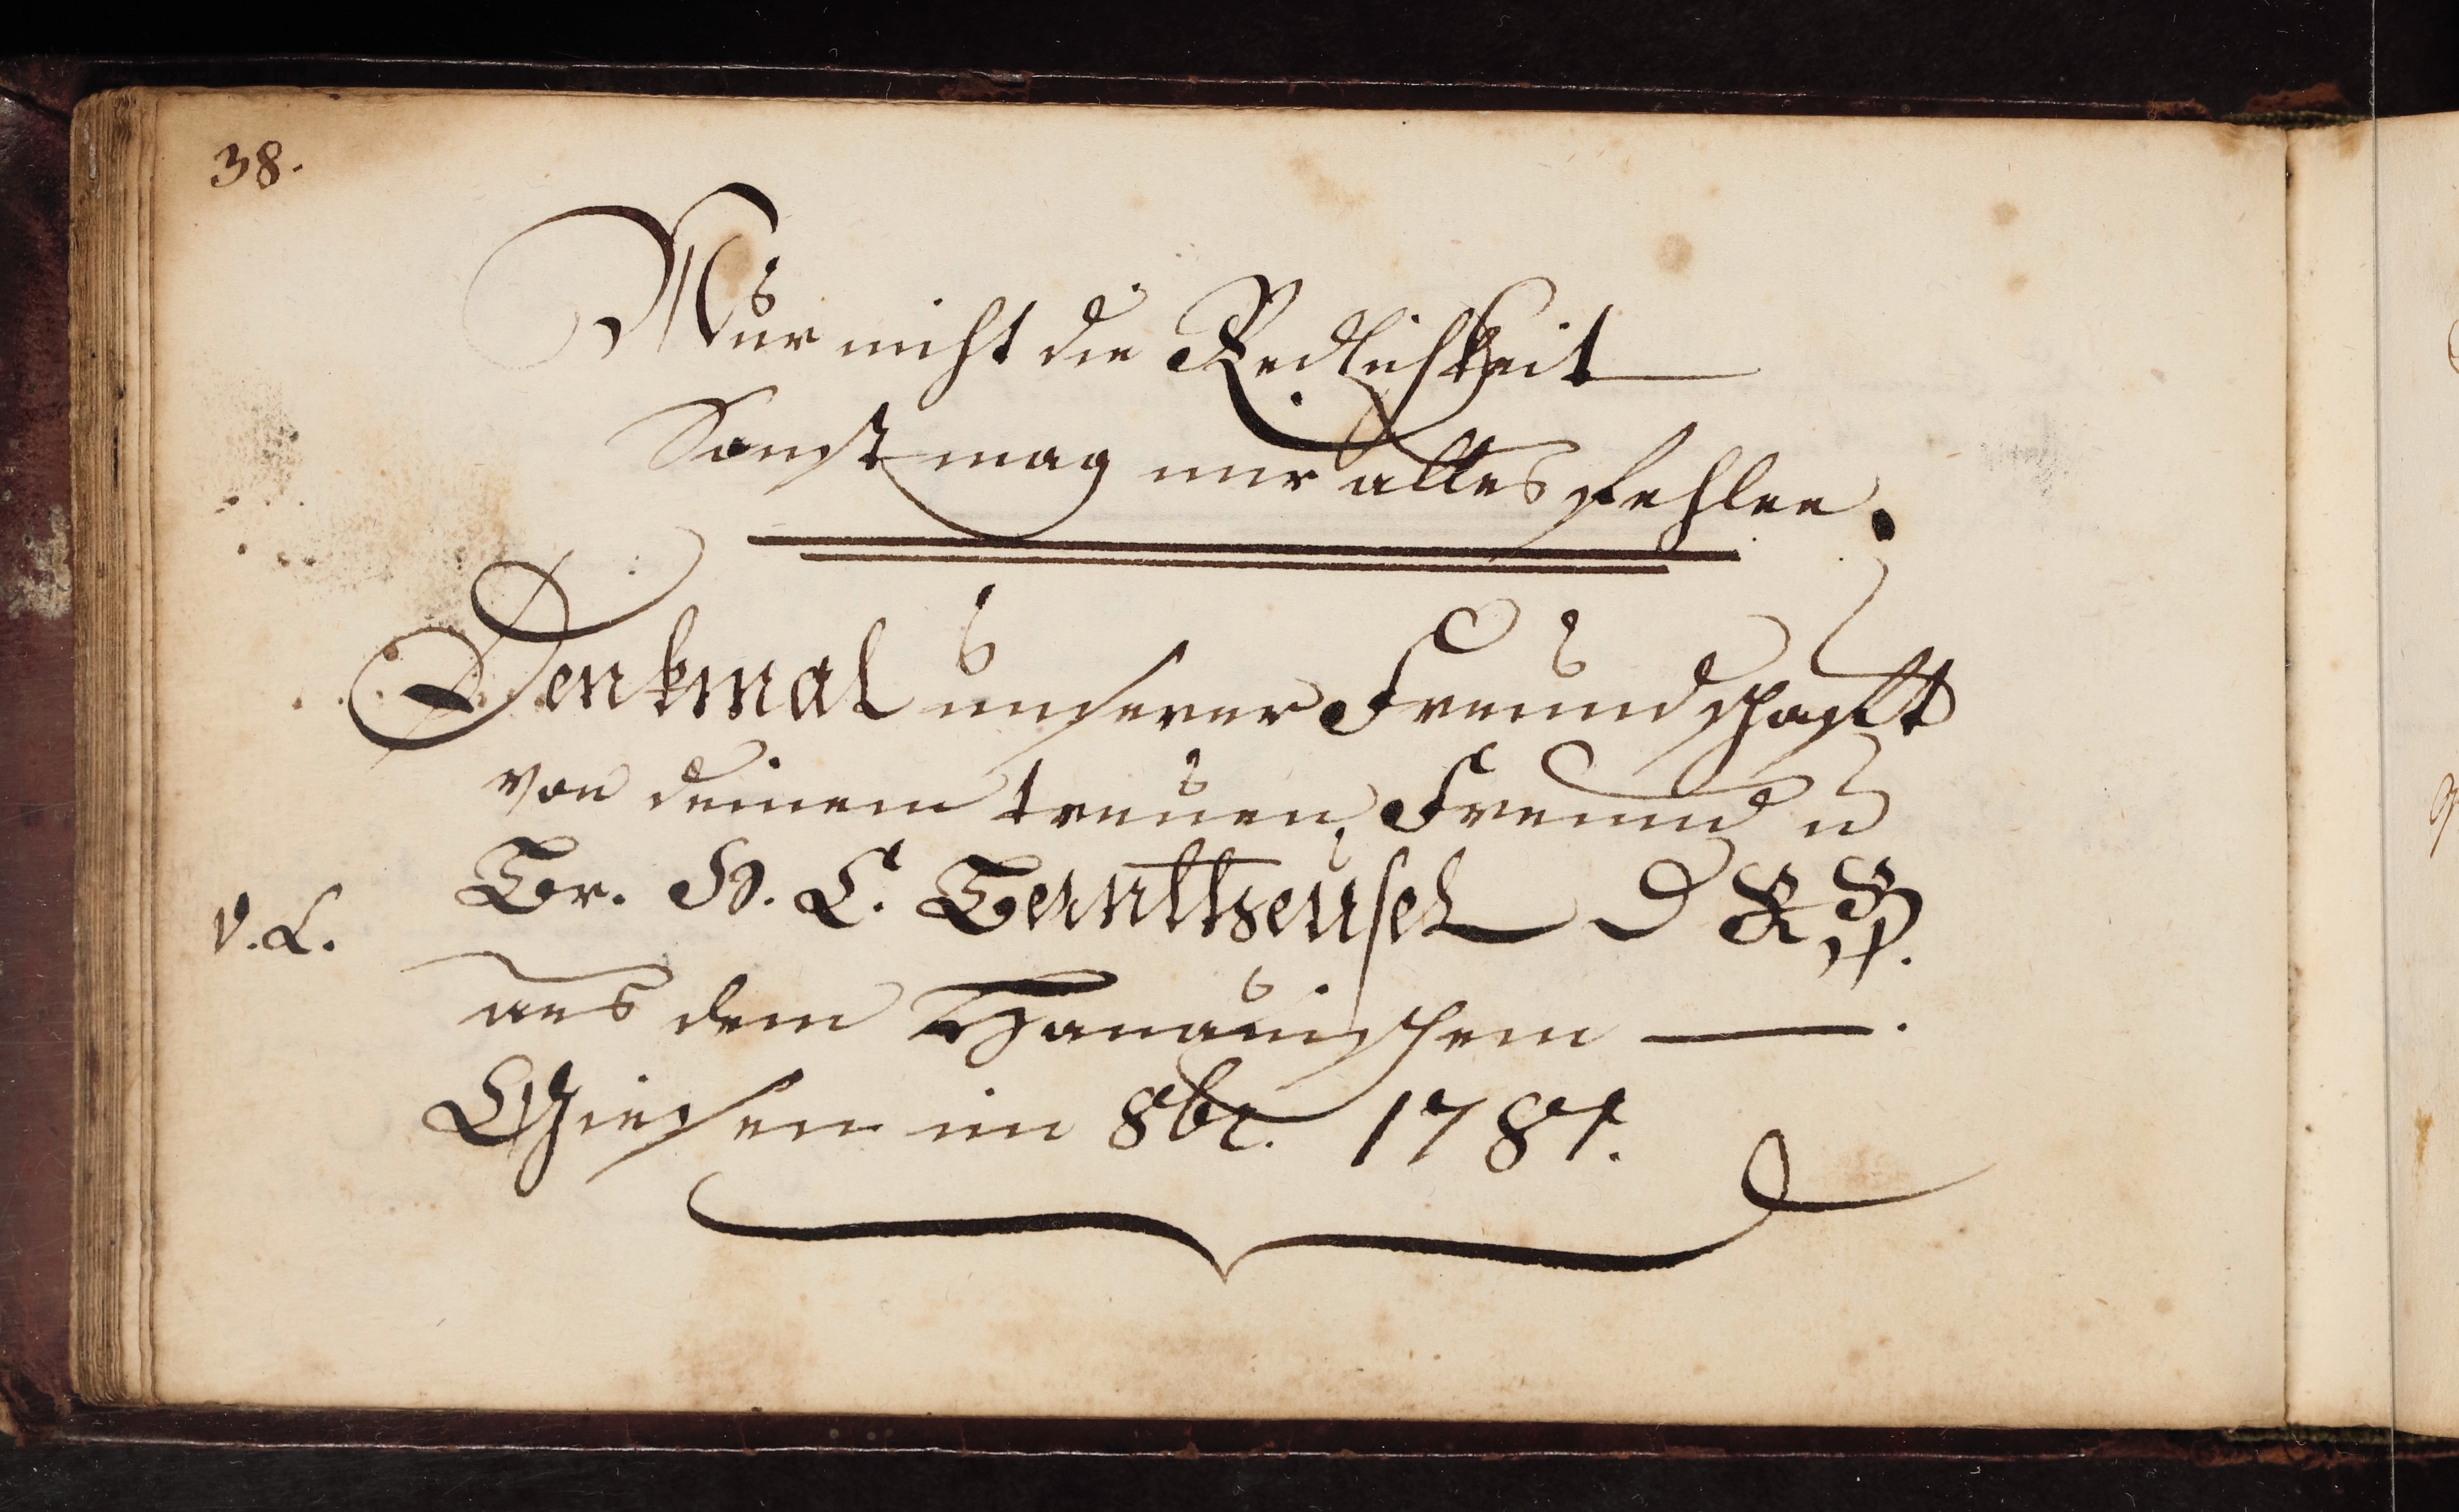 38.
Nur nicht die Redlichkeit
Sonst mag mir alles fehlen.
Denkmal unserer Freundschafft
von deinem treuen Freund u
Br. H. C. Berntheusel D
V. L.
aus dem Hanauischem —.
Giesen im 8br. 1781.